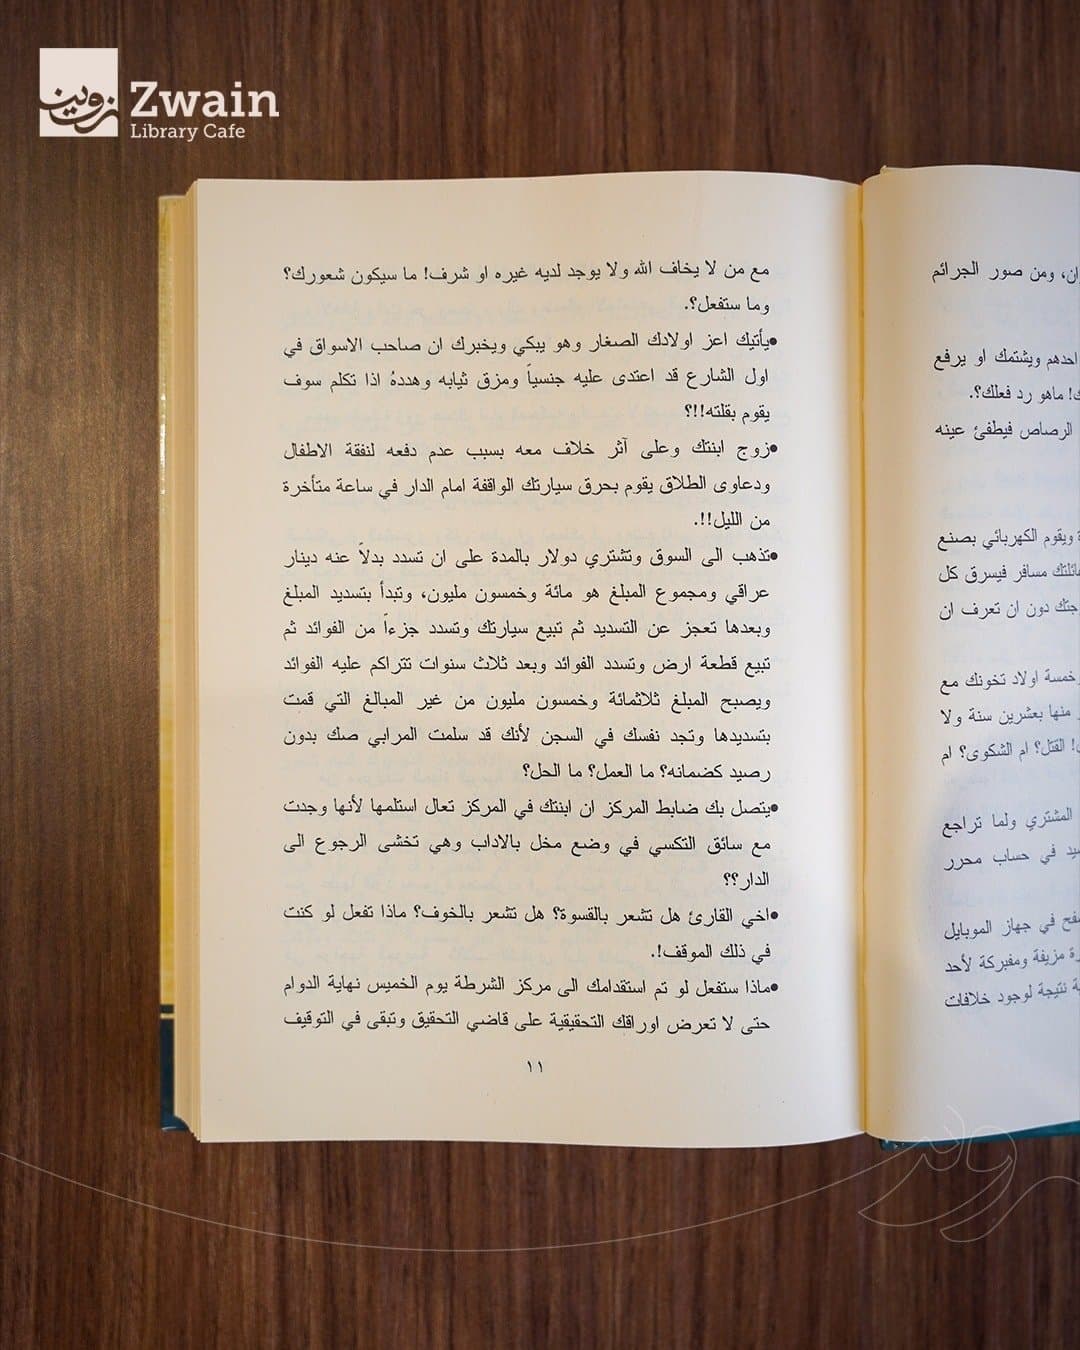 زوين
Zwain
Library Cafe
ان، ومن صور الجرائم
احدهم ويشتمك او يرفع
ك! ماهو رد فعلك؟.
الرصاص فيطفئ عينه
ة ويقوم الكهربائي بصنع
عائلتك مسافر فيسرق كل
جتك دون ان تعرف ان
وخمسة اولاد تخونك مع
منها بعشرين سنة ولا
القتل؟ ام الشكوى؟ ام
المشتري ولما تراجع
في حساب محرر
في جهاز الموبايل
مزيفة ومفبركة لأحد
نتيجة لوجود خلافات
مع من لا يخاف الله ولا يوجد لديه غيره او شرف! ما سيكون شعورك؟
وما ستفعل؟.
•يأتيك اعز اولادك الصغار وهو يبكي ويخبرك ان صاحب الاسواق في
اول الشارع قد اعتدى عليه جنسياً ومزق ثيابه وهددهُ اذا تكلم سوف
يقوم بقلته!!؟
•زوج ابنتك وعلى آثر خلاف معه بسبب عدم دفعه لنفقة الاطفال
ودعاوى الطلاق يقوم بحرق سيارتك الواقفة امام الدار في ساعة متأخرة
من الليل!!.
•تذهب الى السوق وتشتري دولار بالمدة على ان تسدد بدلاً عنه دينار
عراقي ومجموع المبلغ هو مائة وخمسون مليون، وتبدأ بتسديد المبلغ
وبعدها تعجز عن التسديد ثم تبيع سيارتك وتسدد جزءاً من الفوائد ثم
تبيع قطعة ارض وتسدد الفوائد وبعد ثلاث سنوات تتراكم عليه الفوائد
ويصبح المبلغ ثلاثمائة وخمسون مليون من غير المبالغ التي قمت
بتسديدها وتجد نفسك في السجن لأنك قد سلمت المرابي صك بدون
رصيد كضمانه؟ ما العمل؟ ما الحل؟
•يتصل بك ضابط المركز ان ابنتك في المركز تعال استلمها لأنها وجدت
مع سائق التكسي في وضع مخل بالاداب وهي تخشى الرجوع الى
الدار؟؟
•اخي القارئ هل تشعر بالقسوة؟ هل تشعر بالخوف؟ ماذا تفعل لو كنت
في ذلك الموقف!.
•ماذا ستفعل لو تم استقدامك الى مركز الشرطة يوم الخميس نهاية الدوام
حتى لا تعرض اوراقك التحقيقية على قاضي التحقيق وتبقى في التوقيف
١١